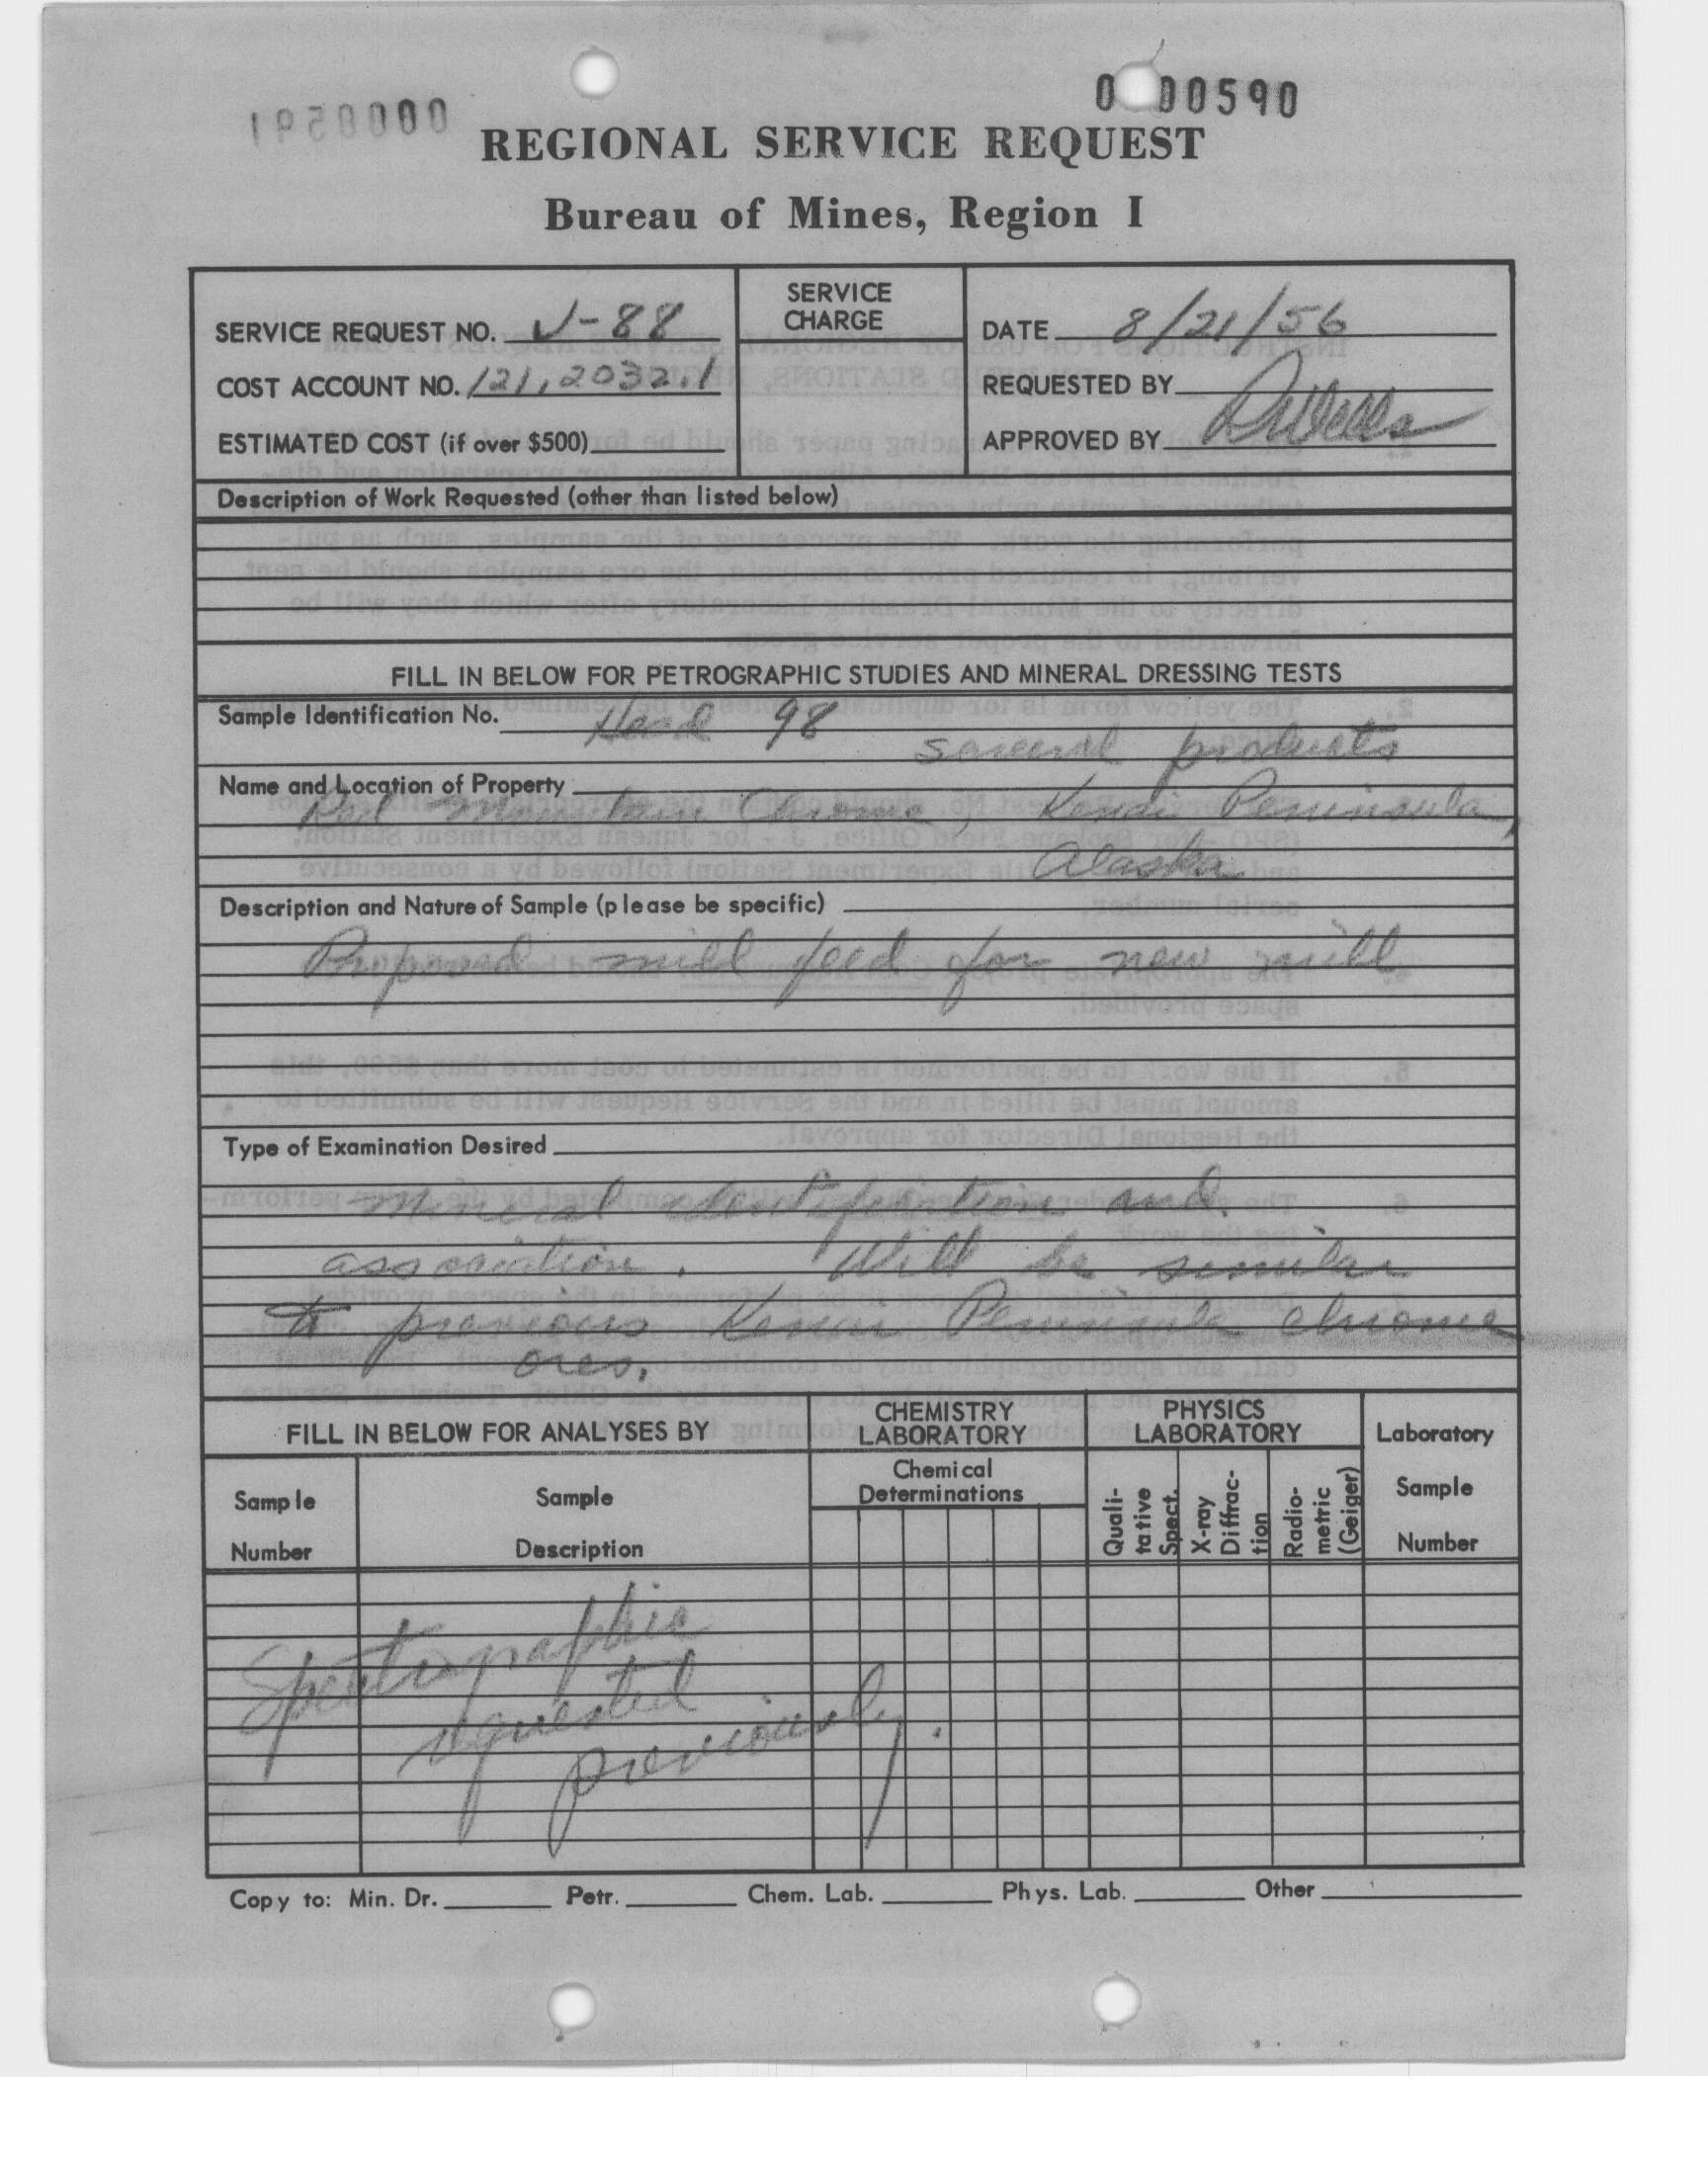 00590
REGIONAL SERVICE REQUEST
Bureau of Mines, Region I
SERVICE REQUEST NO. J-88
COST ACCOUNT NO. 121,2032.1
ESTIMATED COST (if over $500)
SERVICE
CHARGE
DATE 8/21/56
REQUESTED BY
APPROVED BY
Description of Work Requested (other than listed below)
FILL IN BELOW FOR PETROGRAPHIC STUDIES AND MINERAL DRESSING TESTS
Sample Identification No. Head 98
several products
Name and Location of Property
Red Mountain Chrome, Kenai Peninsula,
Alaska
Description and Nature of Sample (please be specific)
Proposed mill feed for new mill
Type of Examination Desired
Mineral identification and
association. Will be similar
to previous Kenai Peninsula chrome
ores.
FILL IN BELOW FOR ANALYSES BY
CHEMISTRY
LABORATORY
PHYSICS
LABORATORY
Laboratory
Sample
Number
Sample
Number
Sample
Description
Chemical
Determinations
Quali-
tative
Spect.
X-ray
Diffrac-
tion
Radio-
metric
(Geiger)
Spectrographic
requested
previously.
Copy to: Min. Dr. Petr. Chem. Lab. Phys. Lab. Other